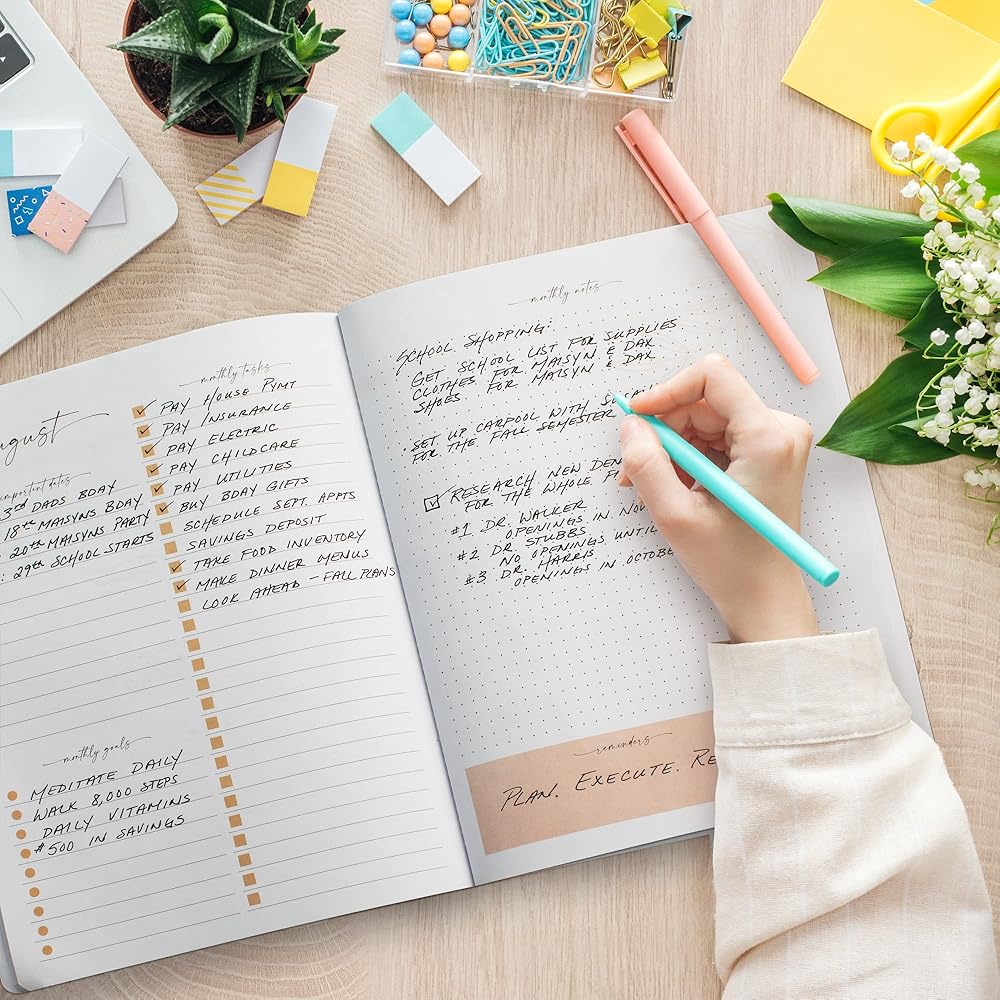 ugust
important dates
3rd DADS BDAY
18th MAISYNS BDAY
20th MAISYNS PARTY
: 29th SCHOOL STARTS
monthly goals
MEDITATE DAILY
WALK 8,000 STEPS
DAILY VITAMINS
$500 IN SAVINGS
monthly tasks
PAY HOUSE PYMT
PAY INSURANCE
PAY ELECTRIC
PAY CHILDCARE
PAY UTILITIES
BUY BDAY GIFTS
SCHEDULE SEPT. APPTS
SAVINGS DEPOSIT
TAKE FOOD INVENTORY
MAKE DINNER MENUS
LOOK AHEAD - FALL PLANS
monthly notes
SCHOOL SHOPPING:
GET SCHOOL LIST FOR SUPPLIES
CLOTHES FOR MAISYN & DAX
SHOES FOR MAISYN & DAX
• SET UP CARPOOL WITH
FOR THE FALL SEMESTER
RESEARCH NEW DEN
FOR THE WHOLE F
#1 DR. WALKER
OPENINGS IN NOV
#2 DR. STUBBS
NO OPENINGS UNTIL
#3 DR. HARRIS
OPENINGS IN OCTOBE
reminders
PLAN. EXECUTE. RE